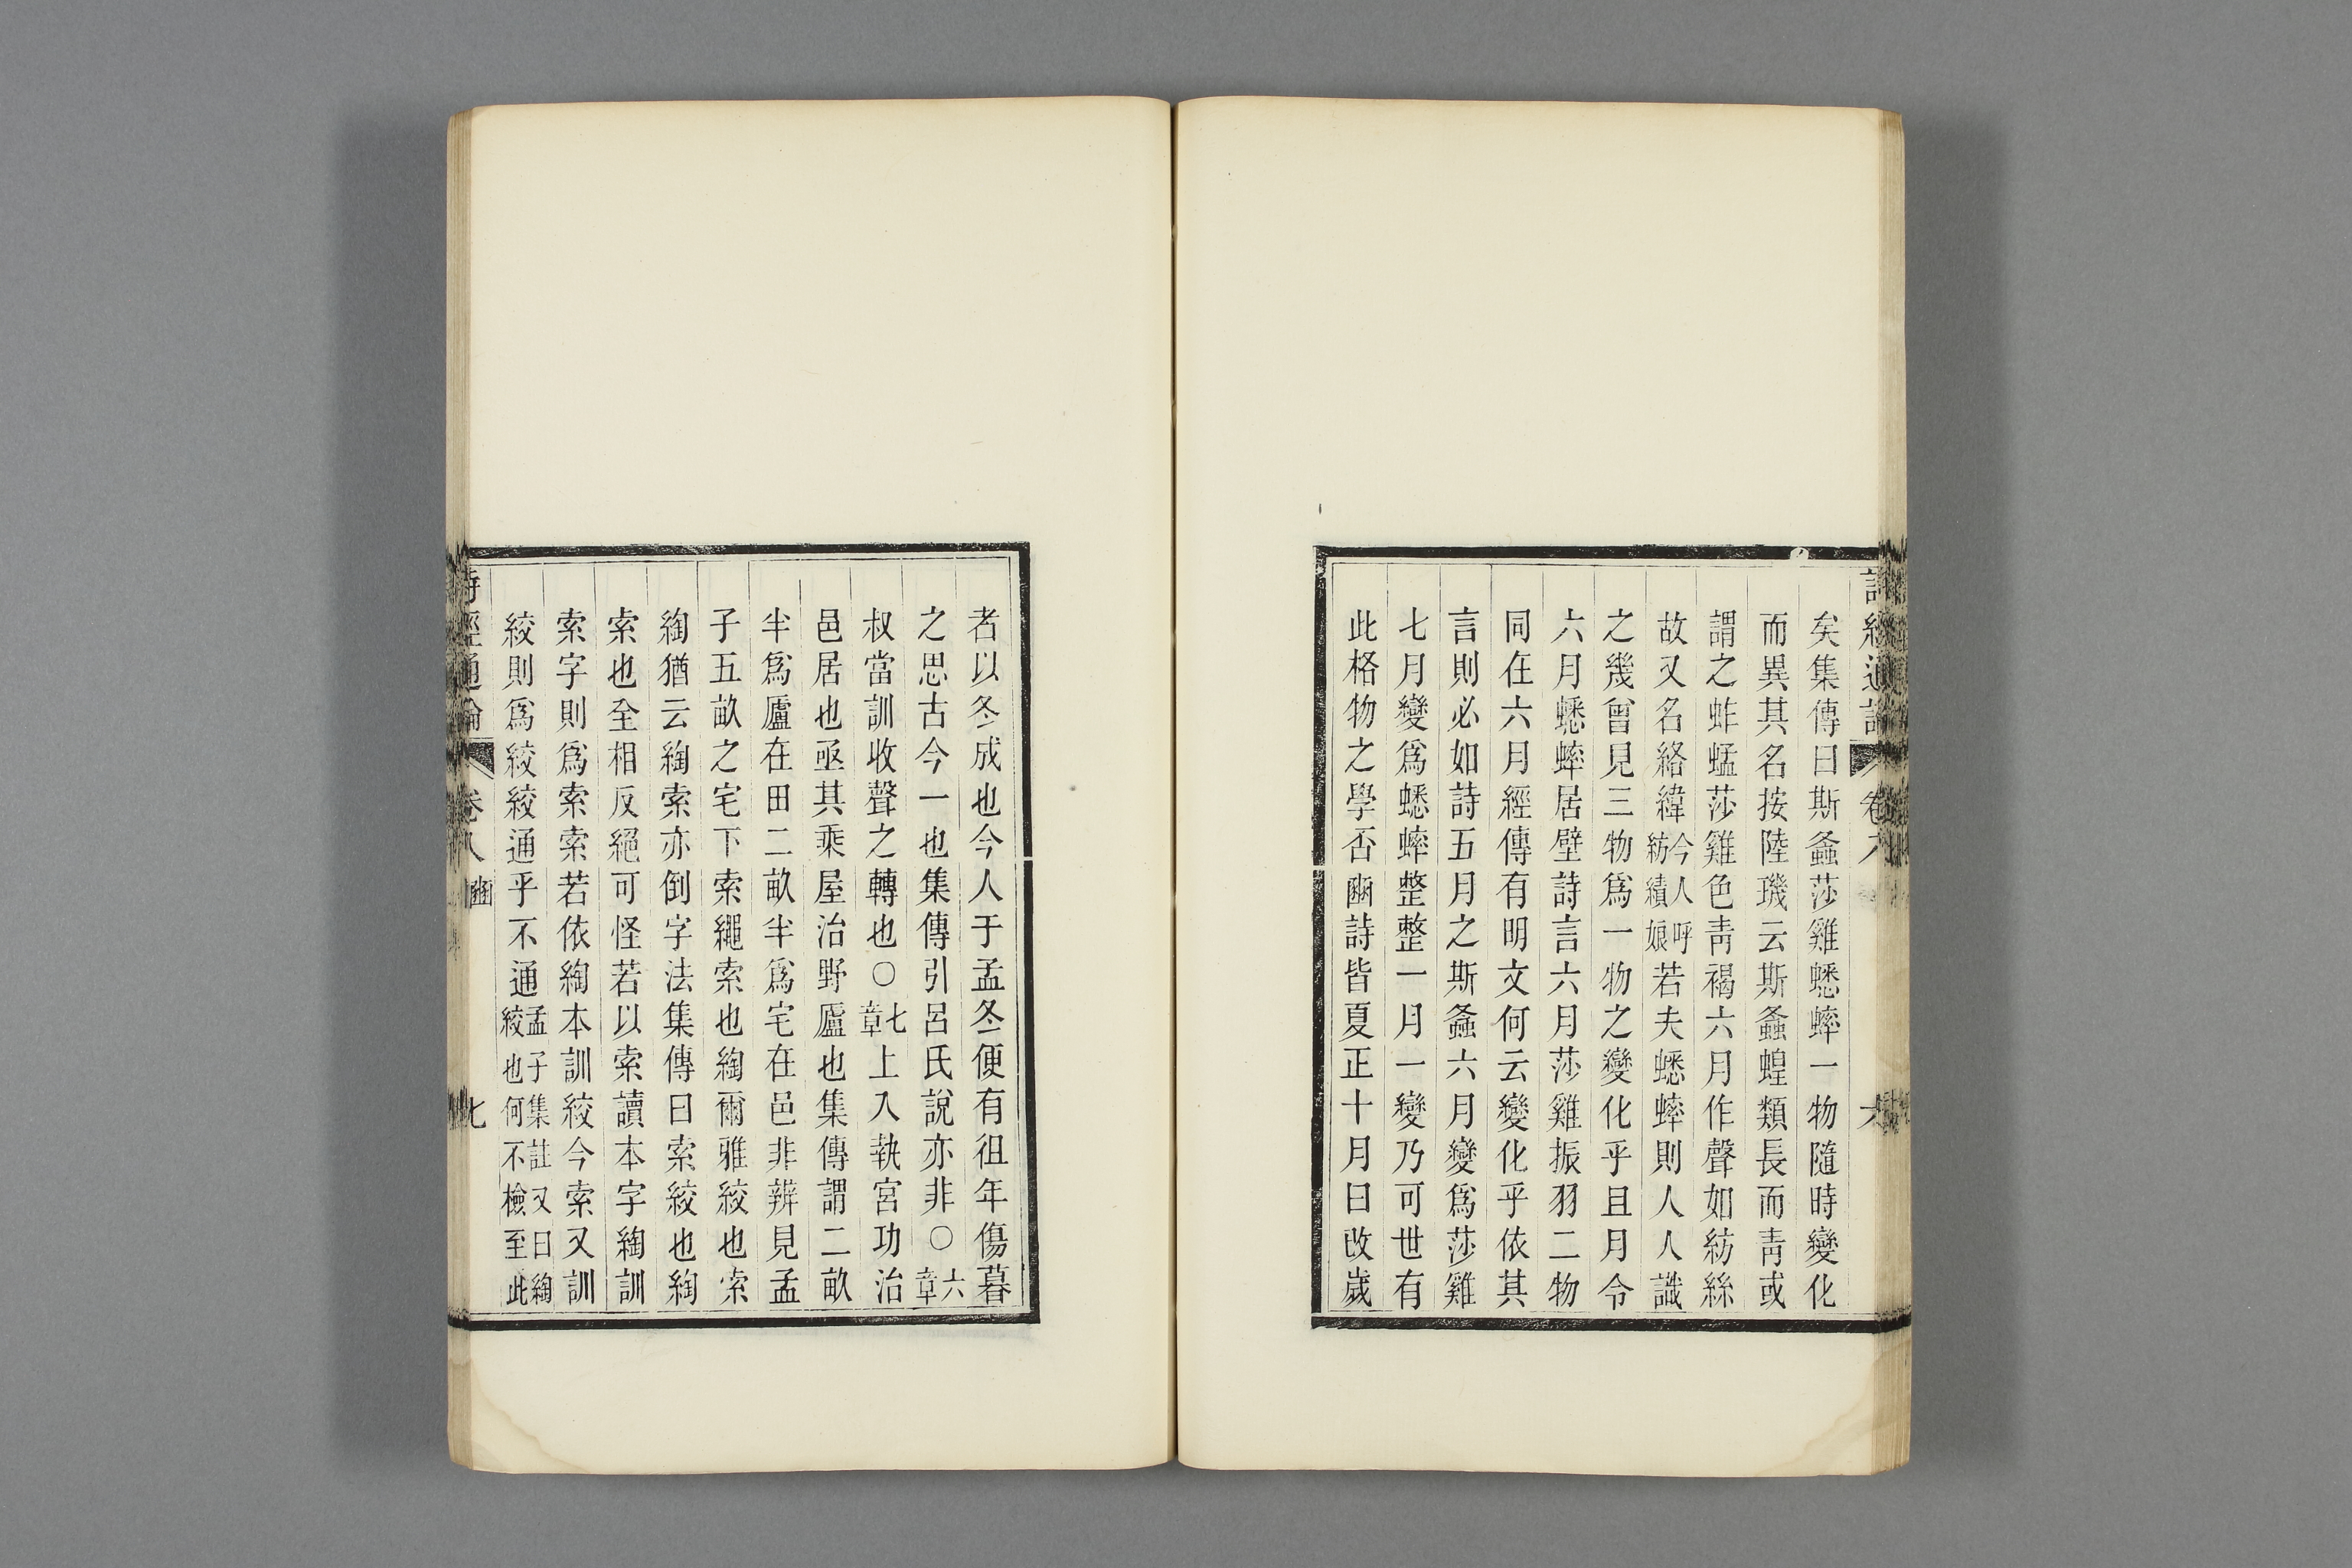 詩經通論 卷八 六
矣集傳曰斯螽莎雞蟋蟀一物隨時變化
而異其名按陸璣云斯螽蝗類長而靑或
謂之蚱蜢莎雞色靑褐六月作聲如紡絲
故又名絡緯今人呼紡績娘若夫蟋蟀則人人識
之幾曾見三物爲一物之變化乎且月令
六月蟋蟀居壁詩言六月莎雞振羽二物
同在六月經傳有明文何云變化乎依其
言則必如詩五月之斯螽六月變爲莎雞
七月變爲蟋蟀整整一月一變乃可世有
此格物之學否豳詩皆夏正十月曰改歲
者以冬成也今人于孟冬便有徂年傷暮
之思古今一也集傳引呂氏說亦非○六章
叔當訓收聲之轉也○七章上入執宮功治
邑居也亟其乘屋治野廬也集傳謂二畝
半爲廬在田二畝半爲宅在邑非辨見孟
子五畝之宅下索繩索也綯爾雅絞也索
綯猶云綯索亦倒字法集傳曰索絞也綯
索也全相反絕可怪若以索讀本字綯訓
索字則爲索索若依綯本訓絞今索又訓
絞則爲絞絞通乎不通孟子集註又曰綯絞也何不檢至此
詩經通論 卷八 豳 七